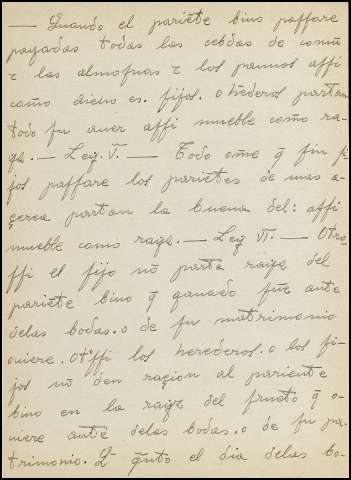 — Quando el pariẽte bino paſſare
pagadas todas las cebdas de comũ
τ las almoſnas τ los pannos aſſi
como dicho es. fijos. o hrederos partan
todo ſu auer aſſi mueble como ra-
yz. — Ley. V. — Todo ome q̃ ſin fi
jos paſſare los pariẽtes de mas a-
çerca partan la buena del: aſſi
mueble como rayz. — Ley VI. — Otro
ſſi el fijo nõ parta rayz del
pariẽte bino q̃ ganado fue ante
delas bodas. o de ſu matrimonio
ouiere. Otroſſi los herederos. o los fi-
jos nõ den raçion al pariente
bino en la rayz del fructo q̃ o-
uiere ante delas bodas. o de ſu pa-
trimonio. q̃nto el dia delas bo-